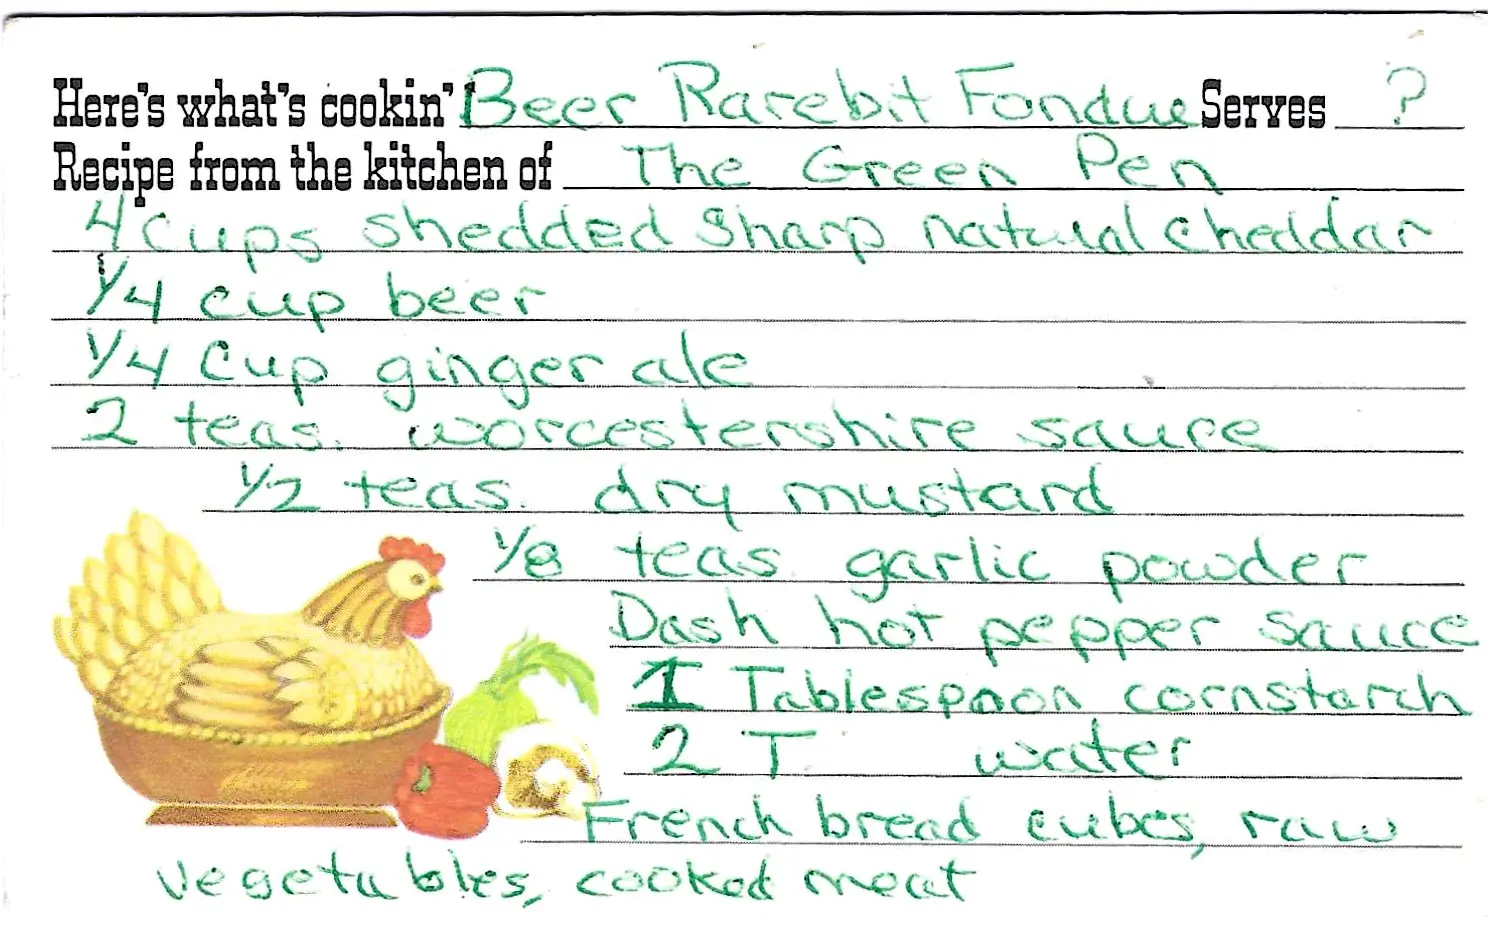 Here's what's cookin' Beer Rarebit Fondue Serves ?
Recipe from the kitchen of The Green Pen
4 cups shedded sharp natural cheddar
1/4 cup beer
1/4 cup ginger ale
2 teas. worcestershire sauce
1/2 teas. dry mustard
1/8 teas. garlic powder
Dash hot pepper sauce
1 Tablespoon cornstarch
2 T. water
French bread cubes, raw
vegetables, cooked meat